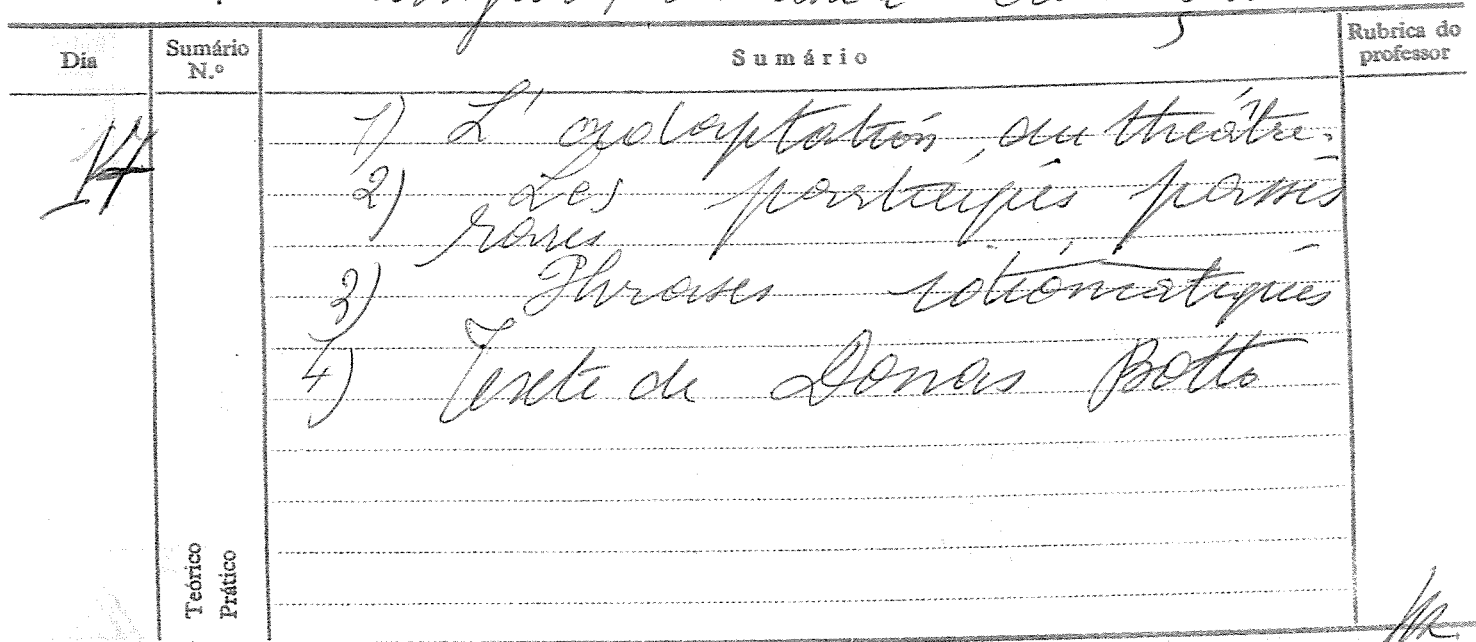 Dia
Sumário N.º
Sumário
Rubrica do professor
17
1) L'adaptation au theâtre.
2) Les participes passés
rares
3) Phrases idiomatiques
4) Texte de Donas Botto
Teórico
Prático